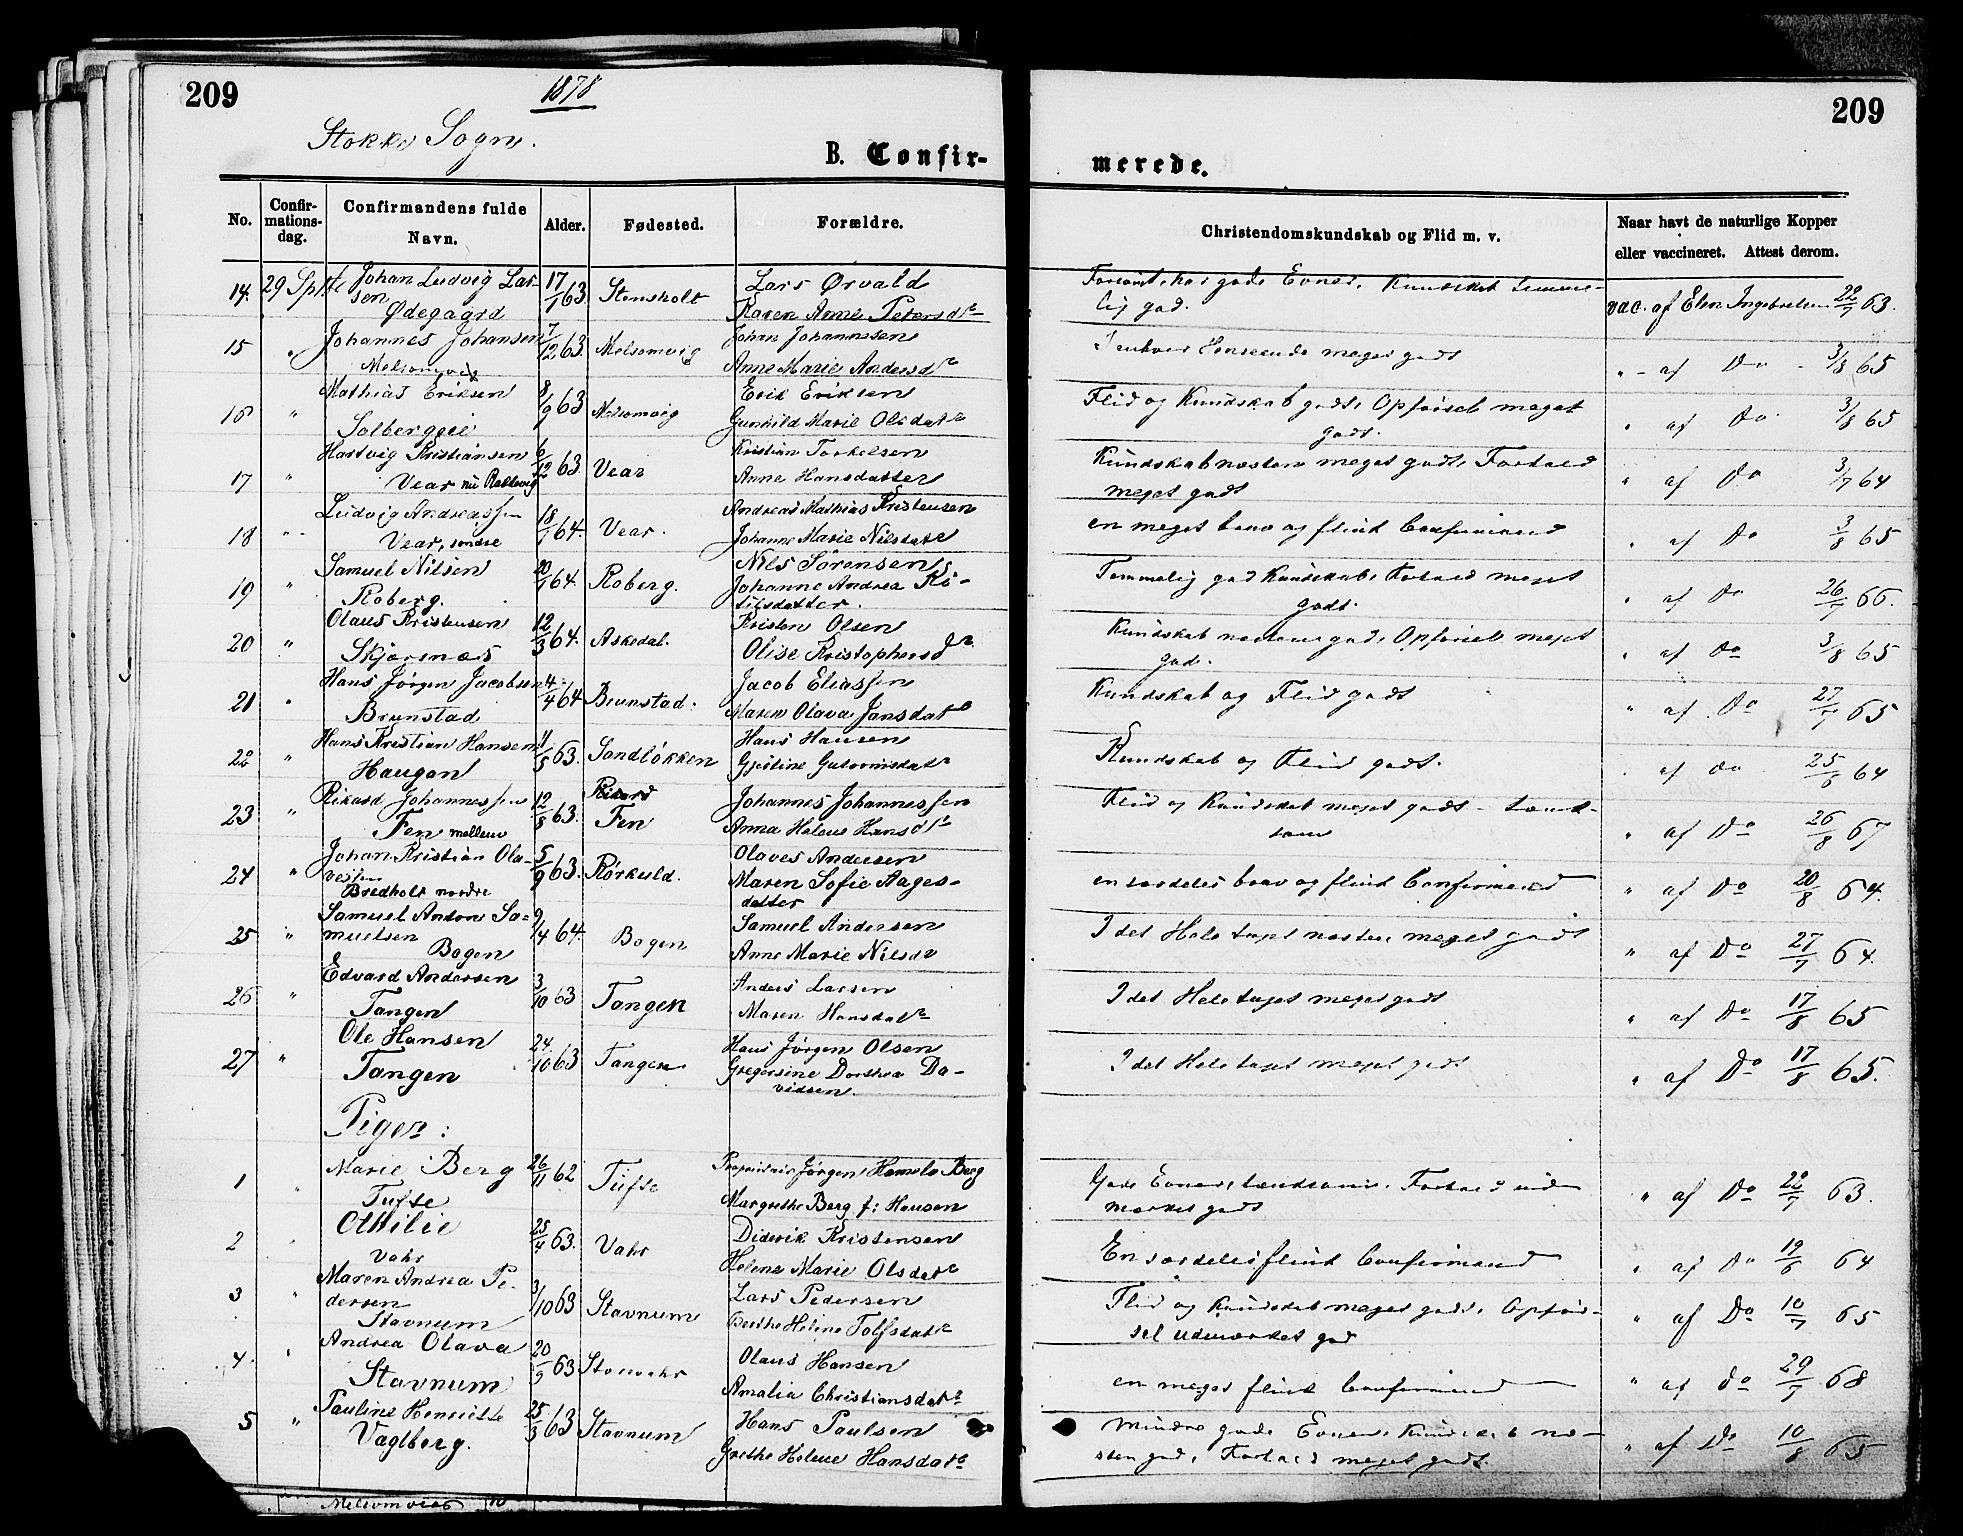 209
1878
209
Stokke Sogn.
B. Confir-
merede.
No.
Confir-
mations-
dag.
Confirmandens fulde
Navn.
Alder.
Fødested.
Forældre.
Christendomskundskab og Flid m. v.
Naar havt de naturlige Kopper
eller vaccineret. Attest derom.
14. 29 Septb Johan Ludvig Lar-
sen
Ødegaard
17/1 63 Stensholt
Lars Ørvald
Karen Anne Petersdr
gode Evner, Kundskab temme-
lig god.
vac. af Elen Ingebretsen 22/7 63.
15 " Johannes Johansen
Melsomvig
7/12 63. Melsomvig
Johan Johannesen
Anne Marie Andersdr
I enhver Henseende meget godt
" af Do 3/8 65
16 " Mathias Eriksen
Solbergeie
8/9 63 Melsomvig
Erik Eriksen
Gunhild Marie Olsdatr
Flid og Kundskab godt, Opførsel meget
godt.
" af Do 3/8 65
17 " Hartvig Kristiansen
Vear nu Rakkevig
6/12 63 Vear
Kristian Torkelsen
Anne Hansdatter
Kundskab næsten meget godt, Forhold
meget godt
" af Do 3/7 64
18 " Ludvig Andreassen
Vear, søndre
18/1 64. Vear.
Andreas Mathias Kristensen
Johanne Marie Nilsdatr
en meget brav og flink Confirmand
" af Do 3/8 65
19 " Samuel Nilsen
Roberg.
20/1 64. Roberg.
Nils Sørensen
Johanne Andrea Ki-
tilsdatter.
Temmelig god Kundskab, Forhold meget
godt.
" af Do 26/7 66.
20 " Olaus Kristensen
Skjærsnæs
12/3 64. Askedal.
Kristen Olsen
Olise Kristophersdr
Kundskab næsten god, Opførsel meget
god.
" af Do 3/8 65
21 " Hans Jørgen Jacobsen
Brunstad
4/4 64 Brunstad.
Jacob Eliassen
Maren Olava Jansdatr
Kundskab og Flid godt
" af Do 27/7 65
22 " Hans Kristian Hansen
Haugan
11/5 63. Sandløkken
Hans Hansen
Gjestine Gutormsdatr
Kundskab og Flid godt.
" af do 25/8 64
23 " Rikard Johannessen
Fen mellem
12/8 63. Rikard
Fen
Johannes Johannessen
Anna Helene Hansdr
Flid og Kundskab meget godt - tænk-
som
" af Do 26/8 67
24 " Johan Kristian Ola-
vesen
Bredholt nordre
5/9 63. Rørkuld.
Olaves Andersen
Maren Sofie Aages-
datter
en særdeles brav og flink Confirmand
" af Do 20/8 64.
25 " Samuel Anton Sa-
muelsen
Bogen
9/4 64. Bogen
Samuel Andersen
Anne Marie Nilsdr
I det Hele taget næsten meget godt
" af Do 27/7 64.
26 " Edvard Andersen
Tangen
3/10 63 Tangen
Anders Larsen
Maren Hansdatr
I det Hele taget meget godt
" af Do 17/8 65
27 " Ole Hansen
Tangen
24/10 63 Tangen
Hans Jørgen Olsen
Gregersine Dorthea Da-
vidsen.
I det Hele taget meget godt
" af Do 17/8 65.
Piger:
1 " Marie Berg
Tufte
26/11 62 Tufte
Proprietair Jørgen Hamelo Berg
Margrethe Berg f: Hansen
Gode Evner, tænksom, Forhold ud-
mærket godt
" af Do 22/7 63.
2 " Othilie
Vahr
25/4 63. Vahr
Diderik Kristensen
Helene Marie Olsdatr
En særdeles flink Confirmand
" af Do 19/6 64
3 " Maren Andrea Pe-
dersen
Stavnum
3/10 63 Stavnum
Lars Pedersen
Berthe Helene Tolfsdatr
Flid og Kundskab meget godt, Opfør-
sel udmærket god
" af Do 10/7 65
4. " Andrea Olava
Stavnum
20/9 63 Storevahr
Olaus Hansen
Amalia Christiansdatr
en meget flink Confirmand
" af do 29/7 68
5 " Pauline Henriette
Vaglberg.
25/3 63 Stavnum
Hans Paulsen
Grethe Helene Hansdatr
Mindre gode Evner, Kundskab næ-
sten god, Forhold meget godt.
" af Do 10/8 65
Melsomvig